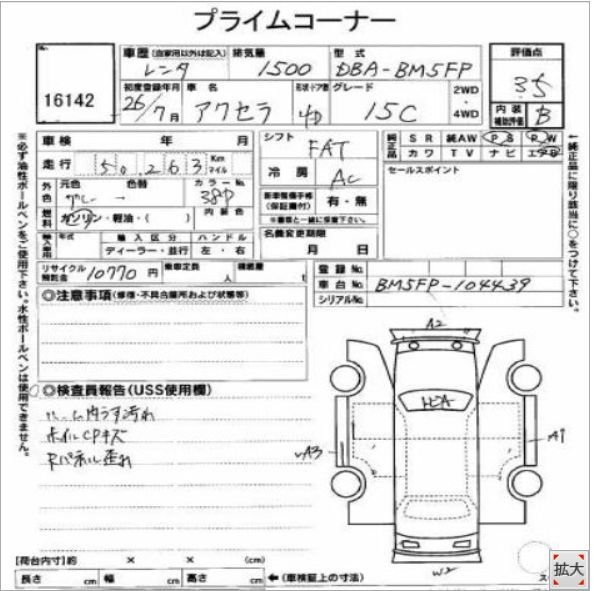 プライムコーナー
No.
16142
車歴 (自家用以外は記入) 排気量 型式
レンタ 1500 DBA-BM5FP
評価点
3.5
内装補助評価 B
初度登録年月 車名 形状・ドア数 グレード 2WD・4WD
26/7月 アクセラ 15C
車検 年 月
走行 50,263 Km マイル
シフト FAT
冷房 AC
純正品 SR 純AW PS PW
カワ TV ナビ エアB
セールスポイント
外色 元色 色替 カラーNo.
グレー 38P
内装色
燃料 ガソリン・軽油・( )
新車整備手帳(保証書付) 有・無
※書類と一緒に保管下さい。
名義変更期限
月 日
輸入車用 年式 輸入区分 ハンドル
ディーラー・並行 左・右
リサイクル預託金 10770 円 乗車定員 人 積載量 t
登録No.
車台No. BM5FP-104439
シリアルNo.
◎注意事項(修復・不具合箇所および状態等)
◎検査員報告(USS使用欄)
ルーム内うす汚れ
ホイルCPキズ
Rパネル歪れ
A2
A3
A1
W2
[荷台内寸]約 × × (cm)
長さ cm 幅 cm 高さ cm ←(車検証上の寸法)
ス
※必ず油性ボールペンをご使用下さい。水性ボールペンは使用できません。
←純正品に限り該当に○をつけて下さい。
拡大